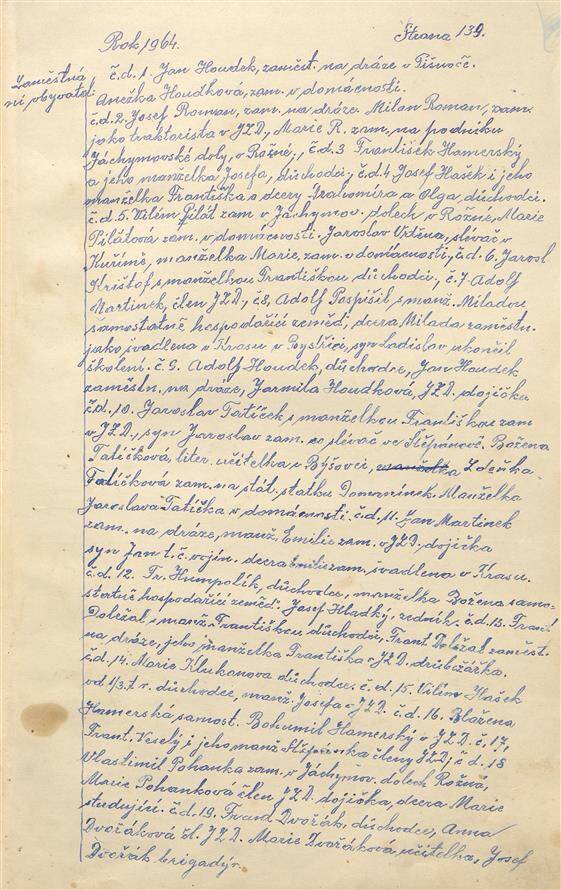 Rok 1964. Strana 139.
Zaměstná
ní obyvatel:
č.d. 1. Jan Houdek, zaměst. na dráze v Tišnově.
Anežka Houdkova, zam. v domácnosti.
č.d. 2. Josef Roman, zam. na dráze. Milan Roman, zam.
jako traktorista v JZD, Marie R. zam. na podniku
Jáchymovské doly, v Rožné, č.d. 3 František Hamerský
a jeho manželka Josefa, důchodci, č.d. 4 Josef Hašek i jeho
manželka Františka a dcery Drahomíra a Olga, důchodci.
č.d. 5. Vilém Pilát zam v Jáchymov. dolech v Rožné, Marie
Pilátová zam. v domácnosti. Jaroslav Vrtěna, slévač v
Kuřimě, manželka Marie, zam. v domácnosti, č.d. 6. Jarosl.
Krištof s manželkou Františkou důchodci, č. 7. Adolf
Martinek, člen JZD, č. 8, Adolf Pospíšil s manž. Miladou
samostatně hospodařící zeměd., dcera Milada zaměstn.
jako švadlena v Krasu v Bystřici, syn Ladislav ukončil
školení. č. 9. Adolf Houdek, důchodce, Jan Houdek
zaměstn. na dráze, Jarmila Houdková, JZD. dojička
č.d. 10. Jaroslav Tatíček s manželkou Františkou zam
v JZD., syn Jaroslav zam. co slévač ve Štěpánově. Božena
Tatíčková, liter. učitelka v Býšovci, Zdeňka
Tatíčková zam. na stát. statku Domanínek. Manželka
Jaroslava Tatíčka v domácnosti. č.d. 11. Jan Martinek
zam. na dráze, manž. Emilie zam. v JZD. dojička
syn Jan t.č. vojín. dcera Emilie zam. švadlena v Krasu.
č.d. 12. Fr. Humpolík, důchodce, manželka Božena samo-
statně hospodařící zeměd. Josef Hladký, zedník. č.d. 13. Frant.
Doležal s manž. Františkou důchodci, Frant. Doležal zaměst.
na dráze, jeho manželka Františka JZD. drůbežářka.
č.d. 14. Marie Klukanova důchodce č.d. 15. Vilém Hašek
od 1/3. t.r. důchodce, manž. Josefa v JZD. č.d. 16. Blažena
Hamerská samost. Bohumil Hamerský v JZD. č. 17,
Frant. Veselý i jeho manž. Štěpánka členy JZD, č.d. 18
Vlastimil Pohanka zam. v Jáchymov. dolech Rožná,
Marie Pohanková člen JZD. dojička, dcera Marie
studující. č.d. 19. Frant. Dvořák, důchodce, Anna
Dvořáková čl. JZD. Marie Dvořáková učitelka, Josef
Dvořák brigadýr.